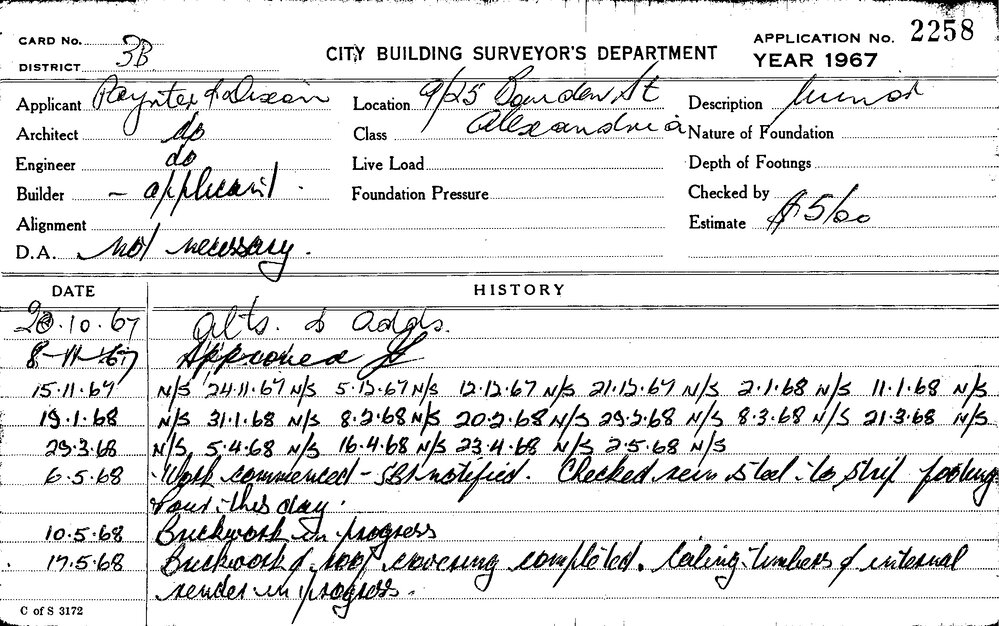 CARD No.
DISTRICT 3B
CITY BUILDING SURVEYOR'S DEPARTMENT
APPLICATION No. 2258
YEAR 1967
Applicant Paynter & Dixon
Location 9/25 Bowden St
Alexandria
Description Minor
Architect do
Class
Nature of Foundation
Engineer do
Live Load
Depth of Footings
Builder – applicant.
Foundation Pressure
Checked by
Alignment
Estimate $5/00
D.A. Not necessary.
DATE HISTORY
20.10.67 Alts. & adds.
8-11-67 Approved
15.11.67 N/S 24.11.67 N/S 5.12.67 N/S 12.12.67 N/S 21.12.67 N/S 2.1.68 N/S 11.1.68 N/S.
19.1.68 N/S 31.1.68 N/S 8.2.68 N/S 20.2.68 N/S 29.2.68 N/S 8.3.68 N/S 21.3.68 N/S.
29.3.68 N/S, 5.4.68 N/S 16.4.68 N/S 23.4.68 N/S 2.5.68 N/S
6.5.68 Work commenced – notified. Checked rein steel to strip footing
Pour this day.
10.5.68 Brickwork in progress
17.5.68 Brickwork & roof covering completed. Ceiling timbers & internal
render in progress.
C of S 3172